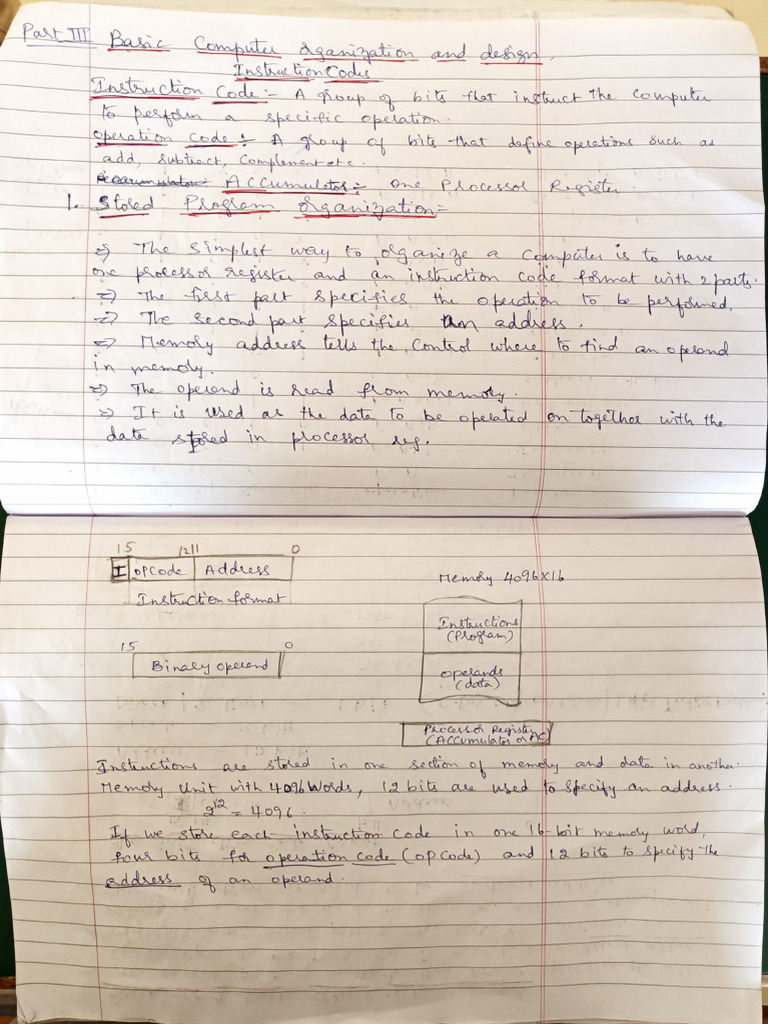 Part III Basic Computer organization and design.
Instruction Codes
Instruction Code:- A group of bits that instruct the computer
to perform a specific operation.
operation code:- A group of bits that define operations such as
add, subtract, complement etc.
ACCumulator:- one Processor Register.
1. Stored Program Organization:-
⇒ The simplest way to organize a computer is to have
one processor register and an instruction code format with 2 parts.
⇒ The first part specifies the operation to be performed.
⇒ The second part specifies an address.
⇒ Memory address tells the control where to find an operand
in memory.
⇒ The operand is read from memory.
⇒ It is used as the data to be operated on together with the
data stored in processor reg.
15 12 11 0
I opcode Address
Instruction format
15 0
Binary operand
Memory 4096x16
Instructions
(Program)
operands
(data)
Processor Register
(ACCumulator or AC)
Instructions are stored in one section of memory and data in another.
Memory Unit with 4096 words, 12 bits are used to specify an address.
2^12 = 4096.
If we store each instruction code in one 16-bit memory word,
four bits for operation code (opcode) and 12 bits to specify the
address of an operand.